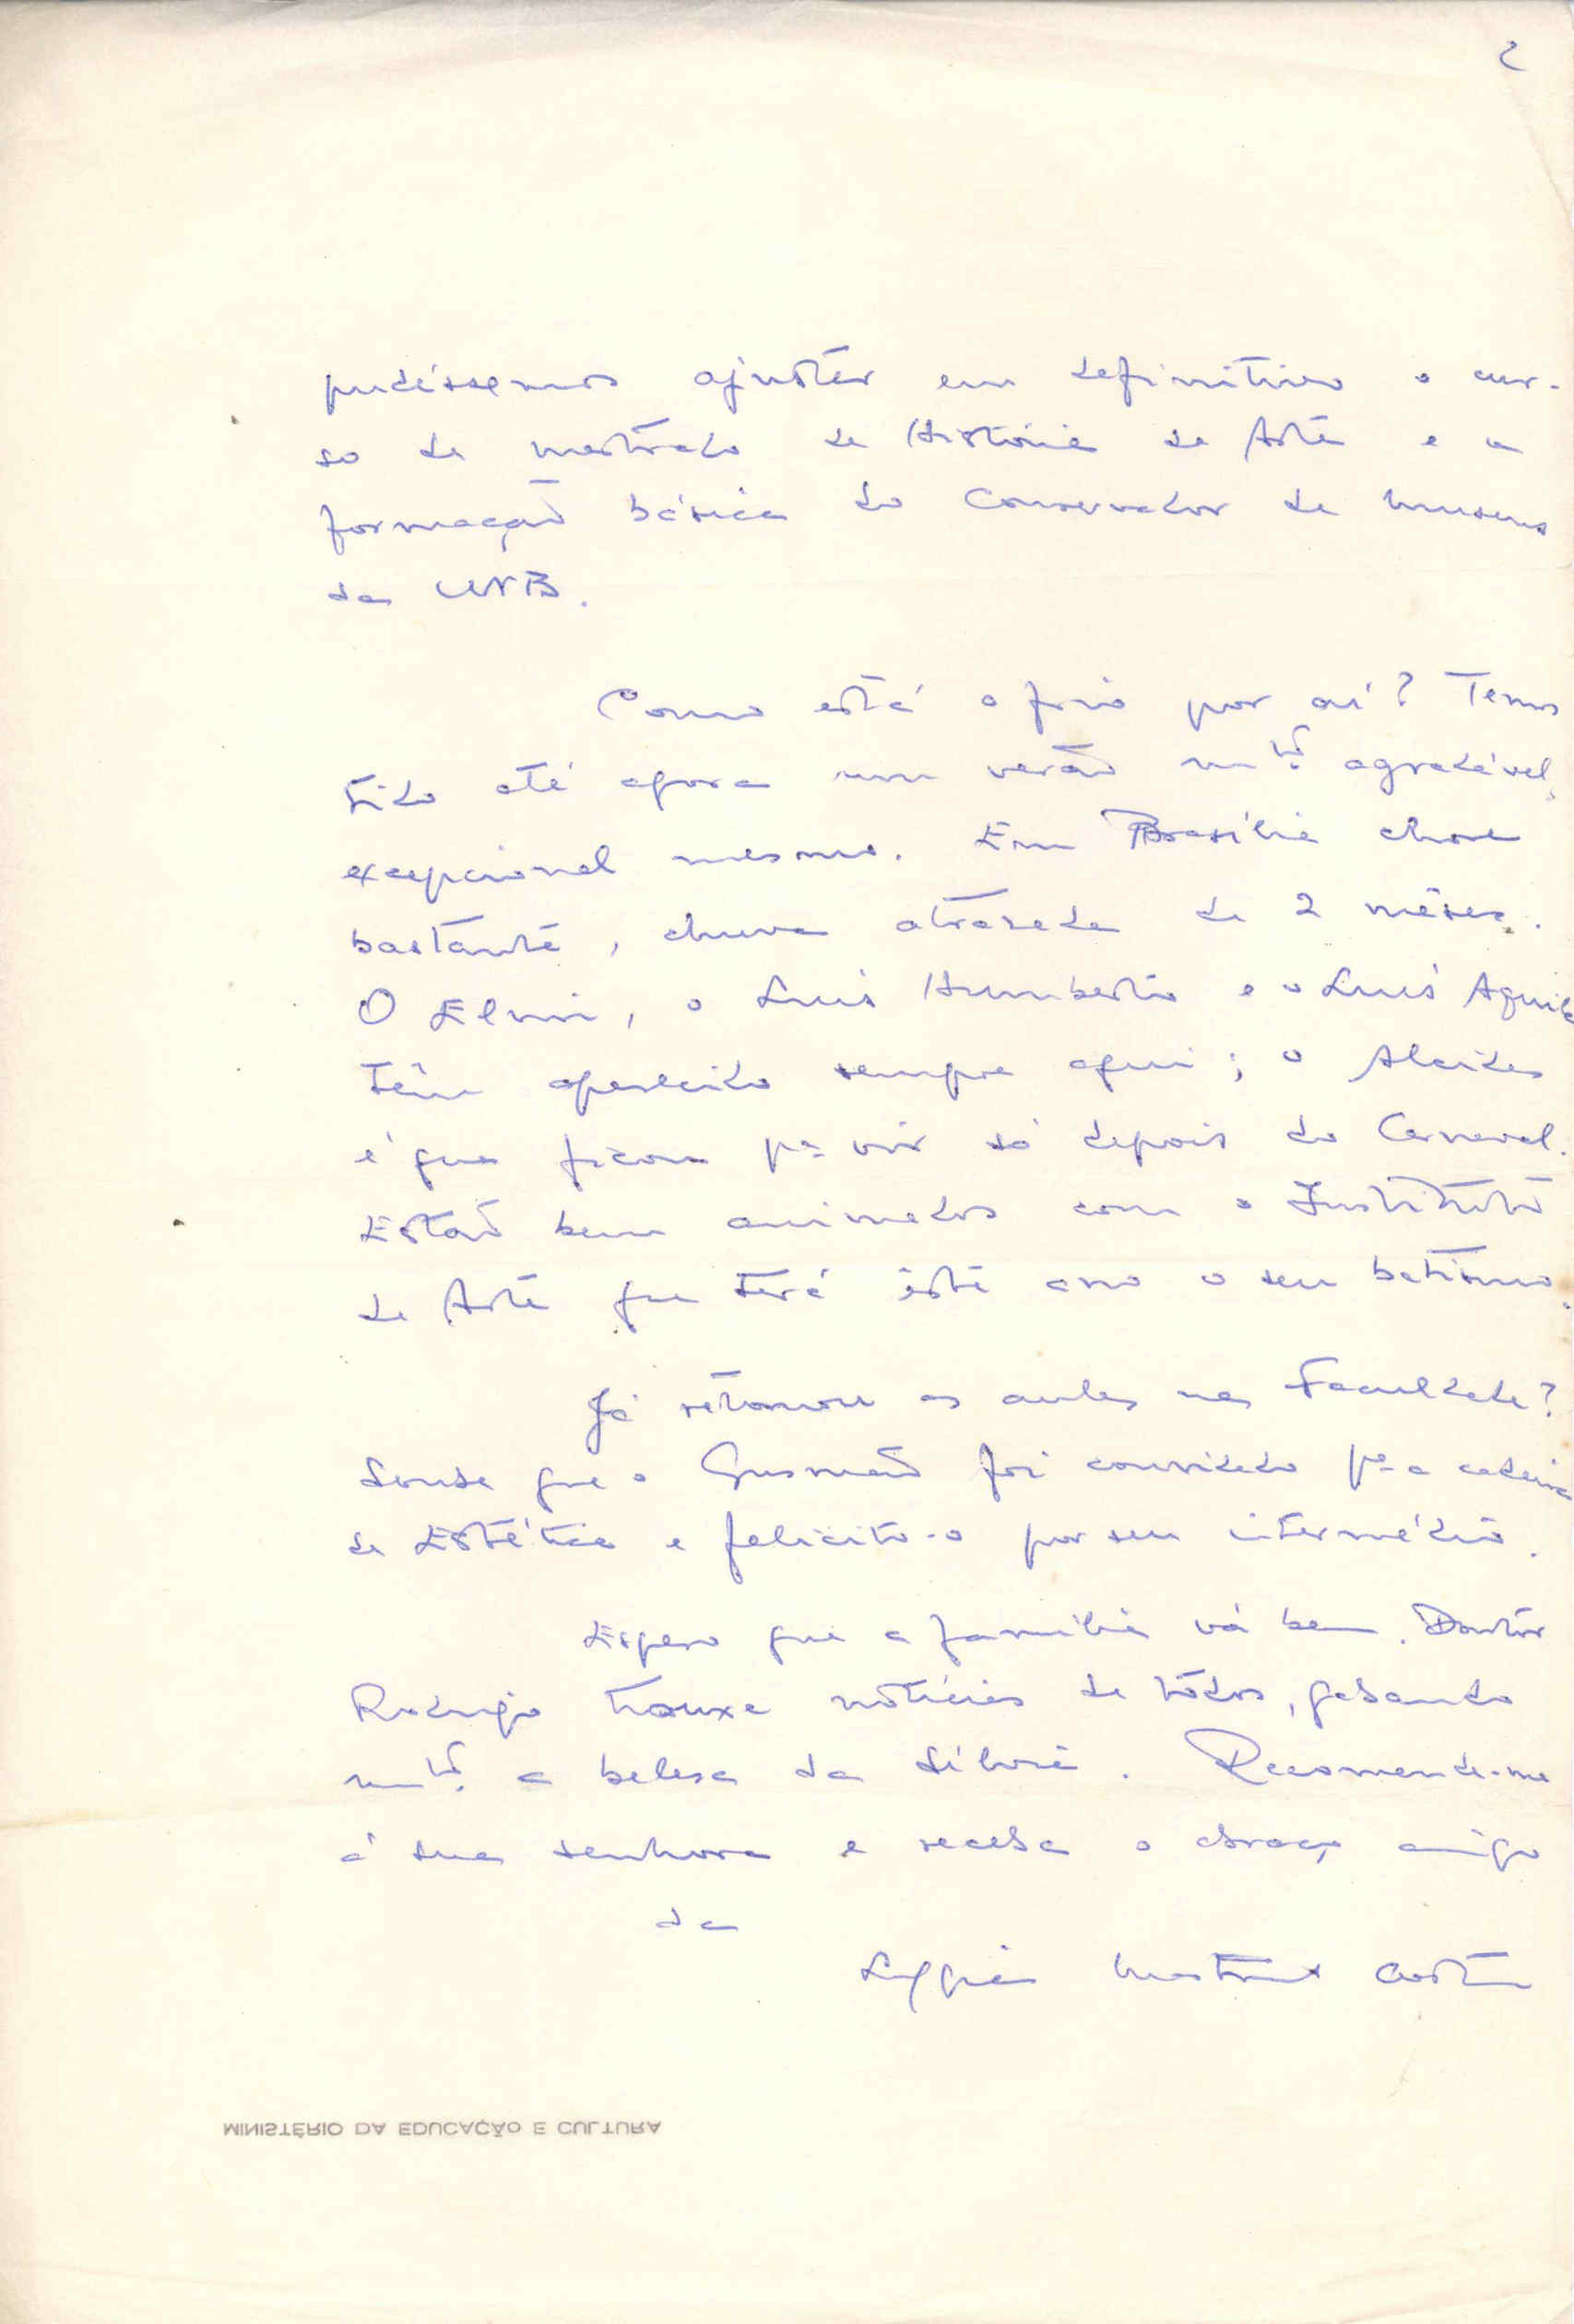 2
pudéssemos ajustar em definitivo o cur-
so de mestrado de História da Arte e a
formação básica do Conservador de Museus
da UNB.
Como está o frio por aí? Temos
tido até agora um verão mtº agradável,
excepcional mesmo. Em Brasília chove
bastante, chuva atrasada de 2 mêses.
O Elvin, o Luis Humberto e o Luis Aquila
têm aparecido sempre aqui; o Alcides
é que ficou pª vir só depois do Carnaval.
Estão bem animados com o Instituto
de Arte que terá êste ano o seu batismo.
Já retomou as aulas na Faculdade?
Soube que o Gusmão foi convidado pª a cadeira
de Estética e felicito-o por seu intermédio.
Espero que a família vá bem. Doutor
Rodrigo trouxe notícias de todos, gabando
mtº a beleza da Sílvia. Recomende-me
à sua senhora e receba o abraço amigo
da
Lygia Martins Costa
MINISTÉRIO DA EDUCAÇÃO E CULTURA